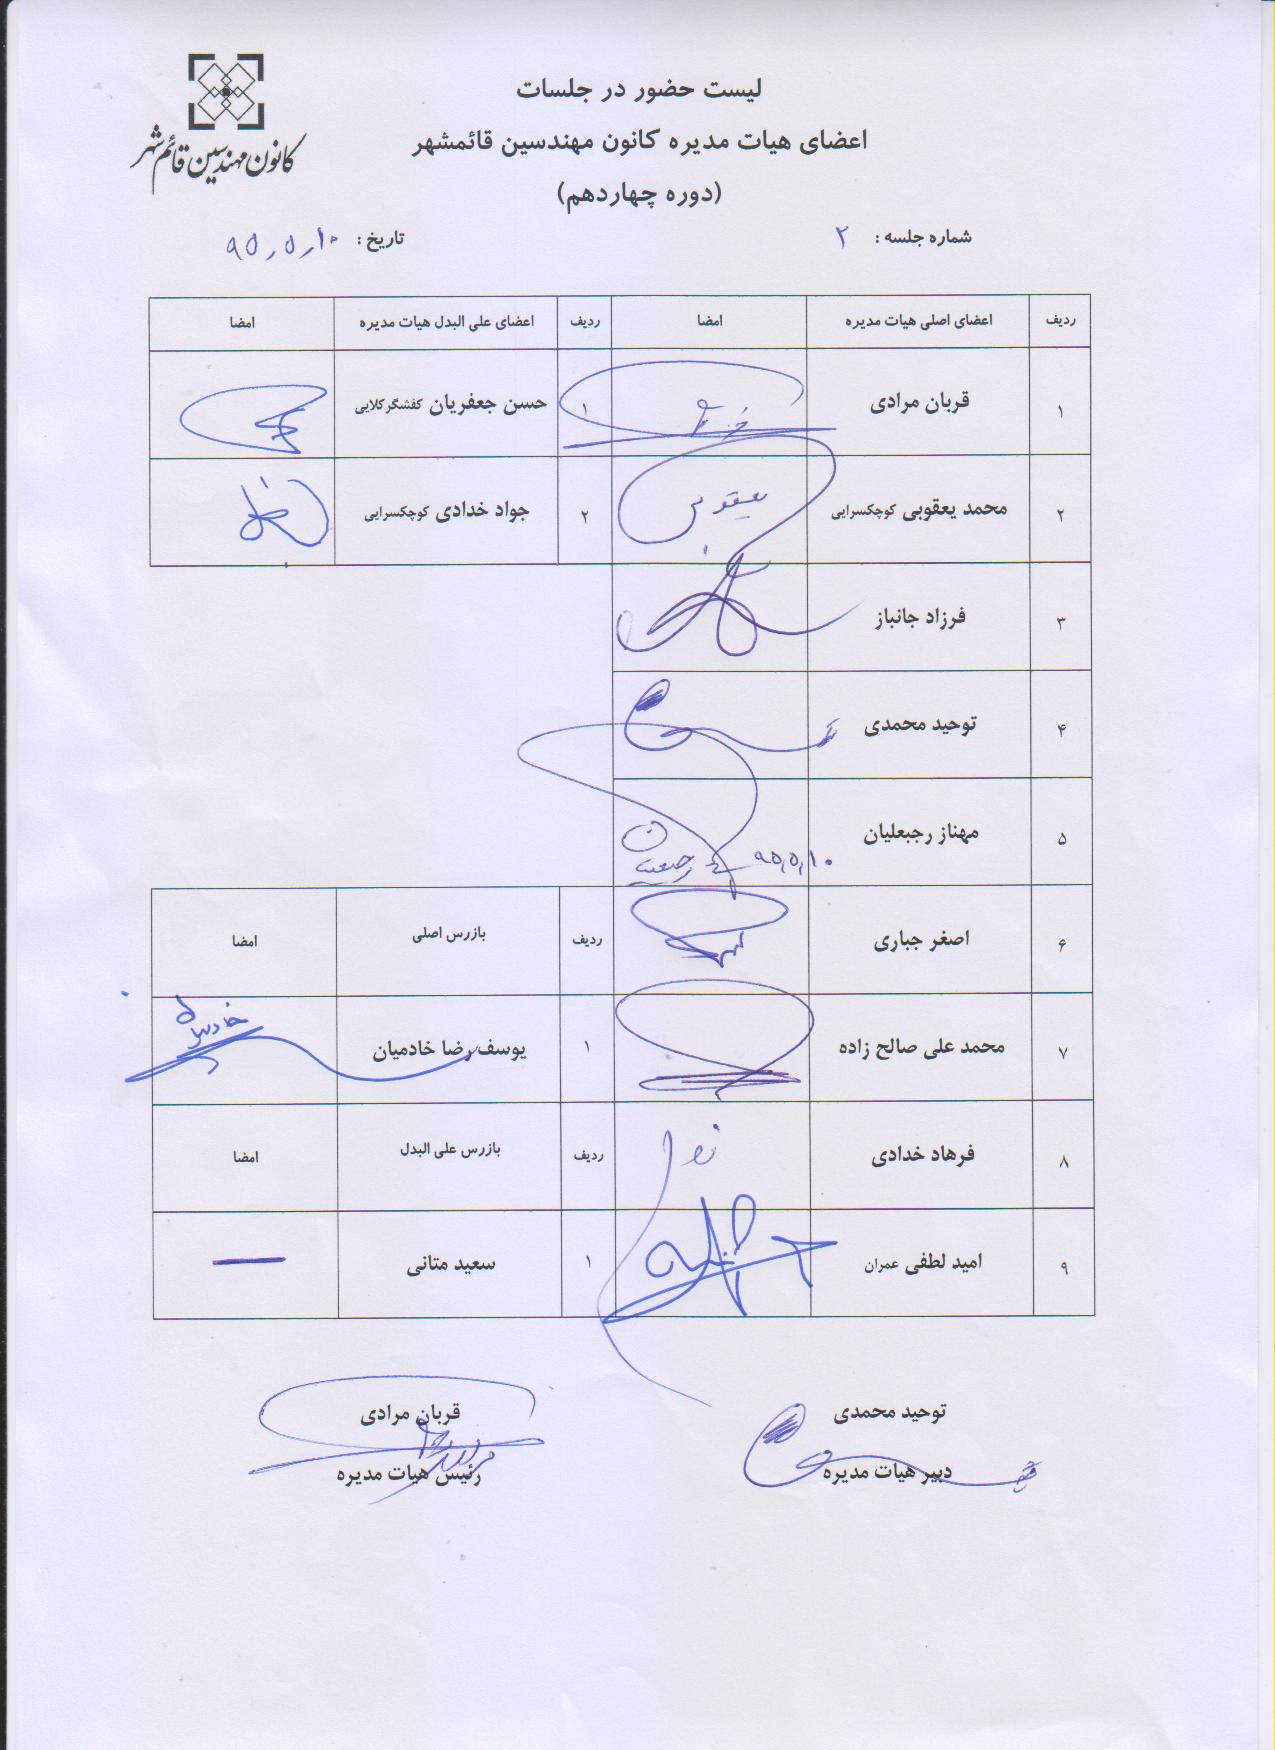 کانون مهندسین قائم شهر
لیست حضور در جلسات
اعضای هیات مدیره کانون مهندسین قائمشهر
(دوره چهاردهم)
شماره جلسه : ۲
تاریخ : ۹۵,۵,۱۰
ردیف اعضای اصلی هیات مدیره امضا ردیف اعضای علی البدل هیات مدیره امضا
۱ قربان مرادی ۱ حسن جعفریان کفشگرکلایی
۲ محمد یعقوبی کوچکسرایی یعقوبی ۲ جواد خدادی کوچکسرایی
۳ فرزاد جانباز
۴ توحید محمدی
۵ مهناز رجبعلیان ۹۵,۵,۱۰
۶ اصغر جباری ردیف بازرس اصلی امضا
۷ محمد علی صالح زاده ۱ یوسف رضا خادمیان
۸ فرهاد خدادی ردیف بازرس علی البدل امضا
۹ امید لطفی عمران ۱ سعید متانی —
توحید محمدی
دبیر هیات مدیره
قربان مرادی
رئیس هیات مدیره